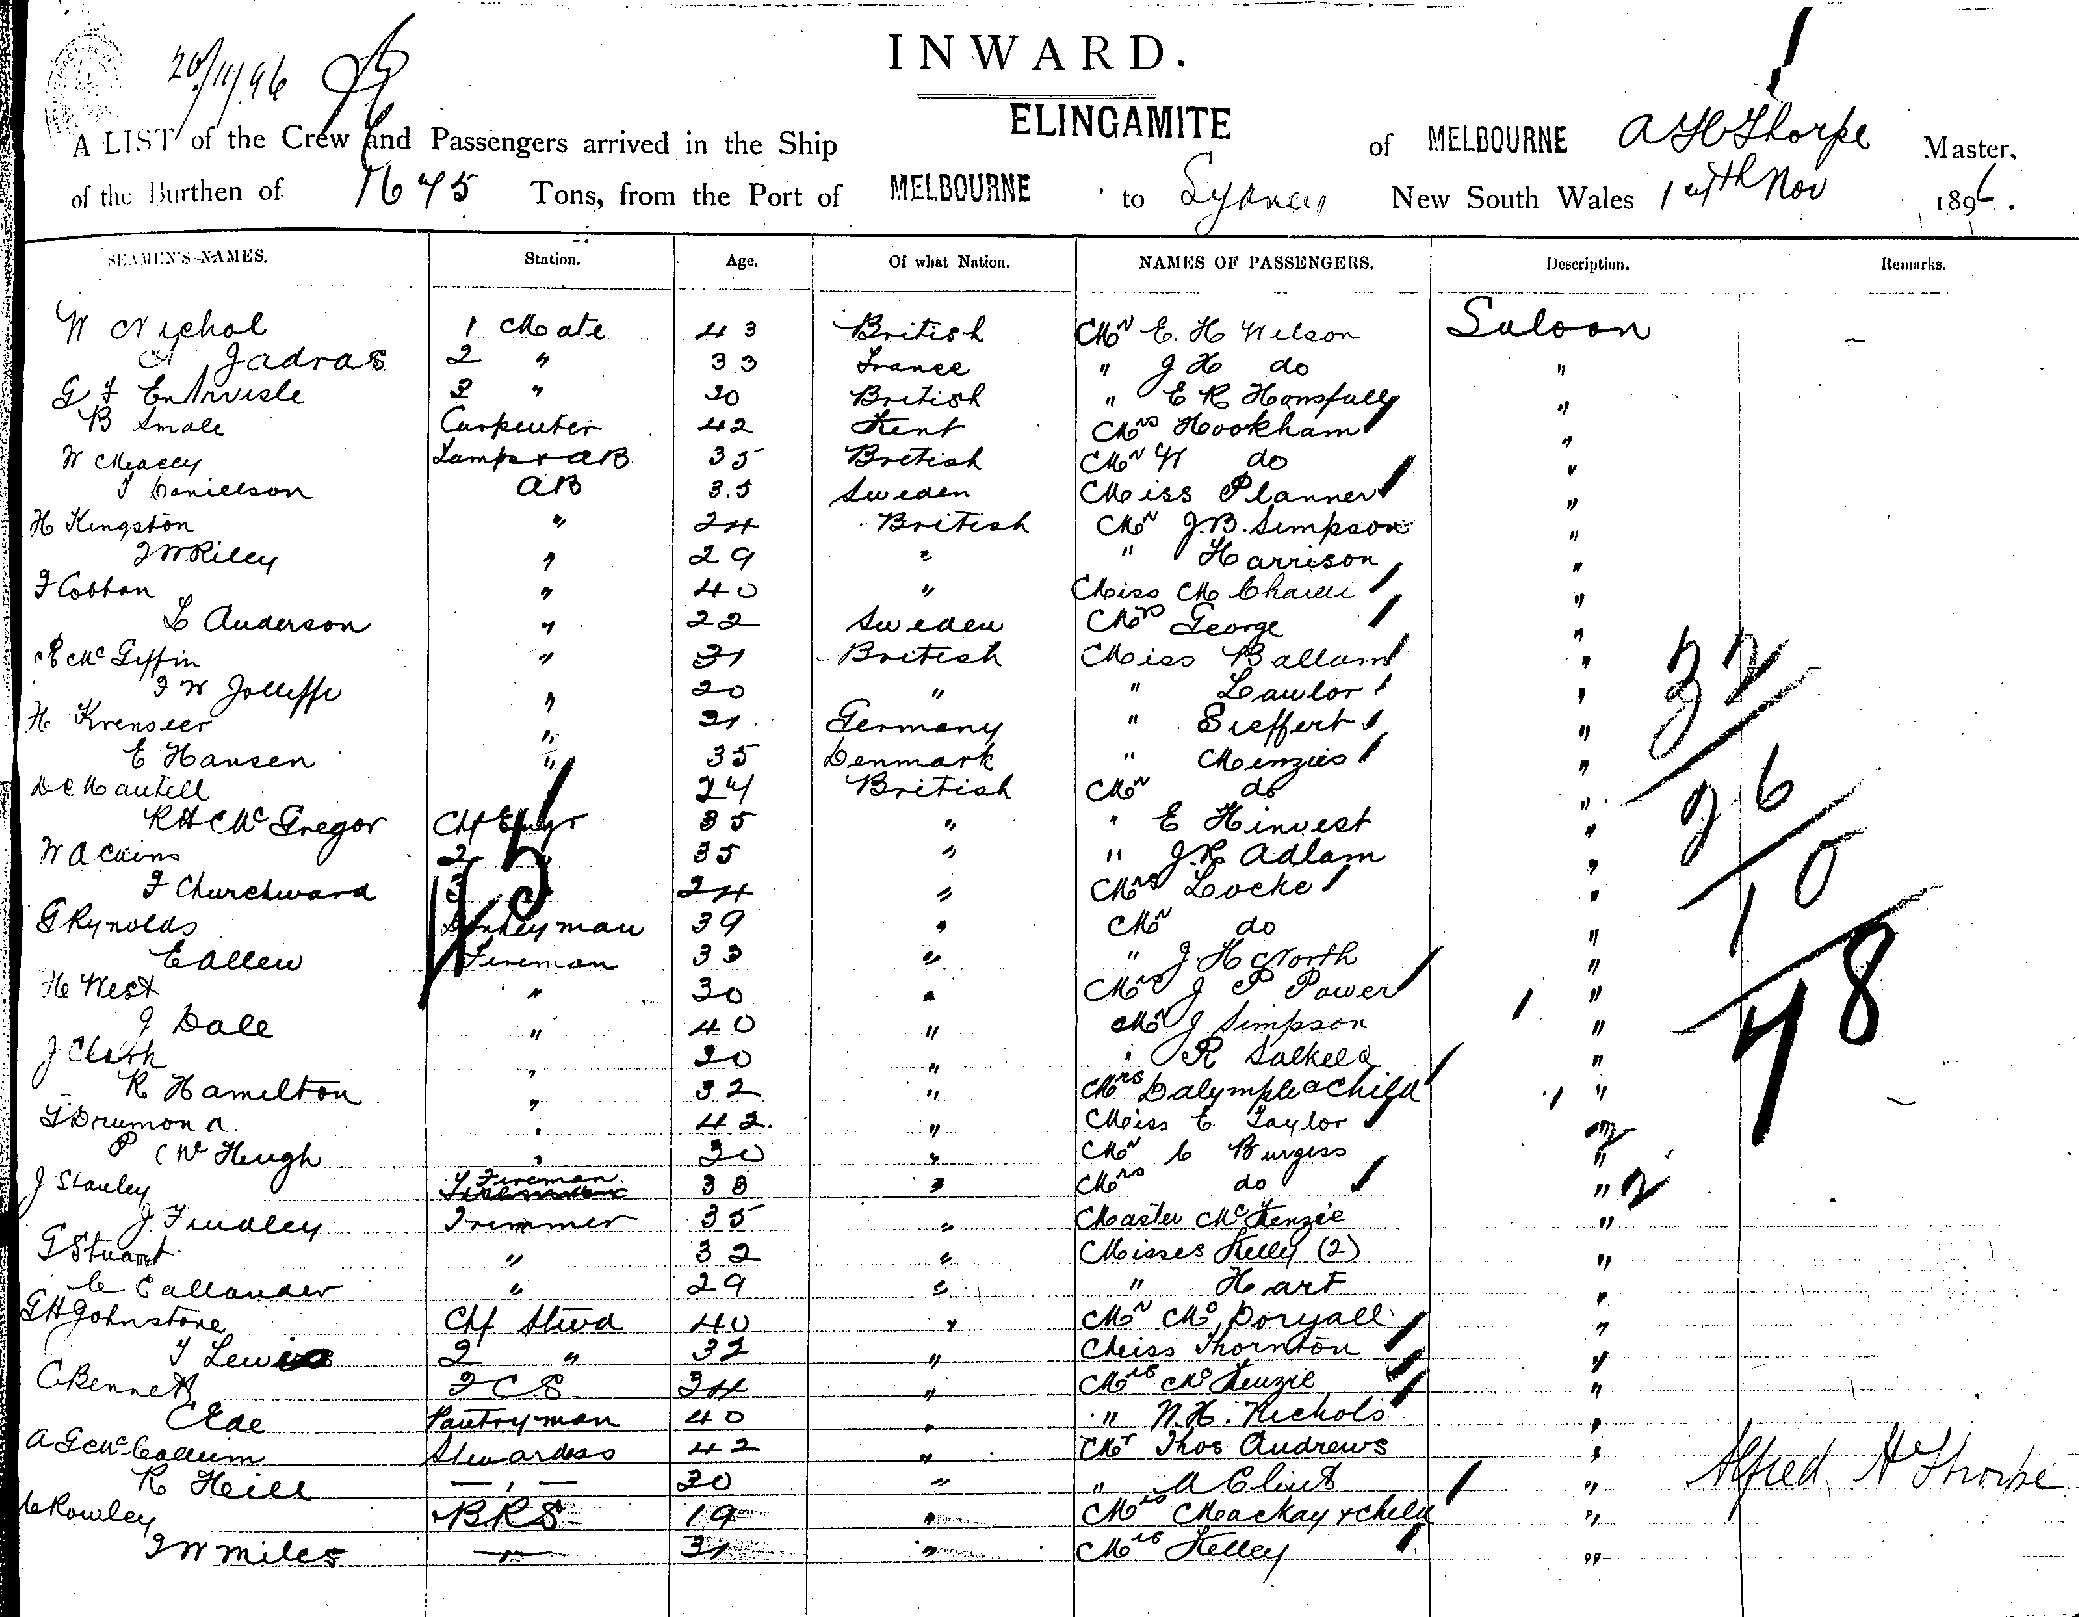 20/11/96
INWARD.
A LIST of the Crew and Passengers arrived in the Ship ELINGAMITE of MELBOURNE A H Thorpe Master,
of the Burthen of 1675 Tons, from the Port of MELBOURNE to Sydney New South Wales 14th Nov 1896.
SEAMEN'S NAMES. Station. Age. Of what Nation. NAMES OF PASSENGERS. Description. Remarks.
W Nichol 1 Mate 43 British Mr E. H Wilson Saloon
A Jadras 2 " 33 France " J H do "
G F Entwisle 3 " 30 British " E R Honsfall "
B Smale Carpenter 42 Kent Mrs Hookham "
W Macey Lamps & AB 35 British Mr W do "
Danielson AB 35 Sweden Miss Planner "
H Kingston " 24 British Mr J.B. Simpson "
J W Riley " 29 " " Harrison "
F Cobban " 40 " Miss M "
L Anderson " 22 Sweden Mrs George "
Mc Giffin " 31 British Miss Ballam "
J W Jolliffe " 20 " " Lawlor "
H " 21 Germany " Sieffert "
E Hansen " 35 Denmark " Menzies "
" 24 British Mr do "
R H Mc Gregor Chf Engr 35 " " E Hinvest "
W 2 35 " " J.R. Adlam "
F Churchward 3 24 " Mrs Locke "
G Rynolds Donkeyman 39 " Mr do "
E Allen Fireman 33 " " J H North "
H West " 30 " Mrs J P Power "
J Dale " 40 " Mr J Simpson "
J Clark " 30 " " R Salkeld "
R Hamilton " 32 " Mrs Dalymple & Child "
Drumond " 42 " Miss E Taylor "
P Mc Hugh " 30 " Mr C Burgess "
J Stanley Fireman 38 " Mrs do " 2
J Findley Trimmer 35 " Master McKenzie "
G Stuart " 32 " Misses Kelly (2) "
C Callander " 29 " " Hart "
G H Johnstone Chf Stwd 40 " Mr Mc Doryall "
T Lewis 2 " 32 " Miss Thornton "
C Bennett F C S 34 " Mrs McKenzie "
C Ede Pantryman 40 " " N.H. Nichols "
A G McCallum Stewardess 42 " Mr Thos Andrews "
R Heill " 30 " " A Clint "
C Rowley BRS 19 " Mrs Mackay & child "
J W Miles " 31 " Mrs Kelley "
32
26
10
78
75
Alfred H Thorpe